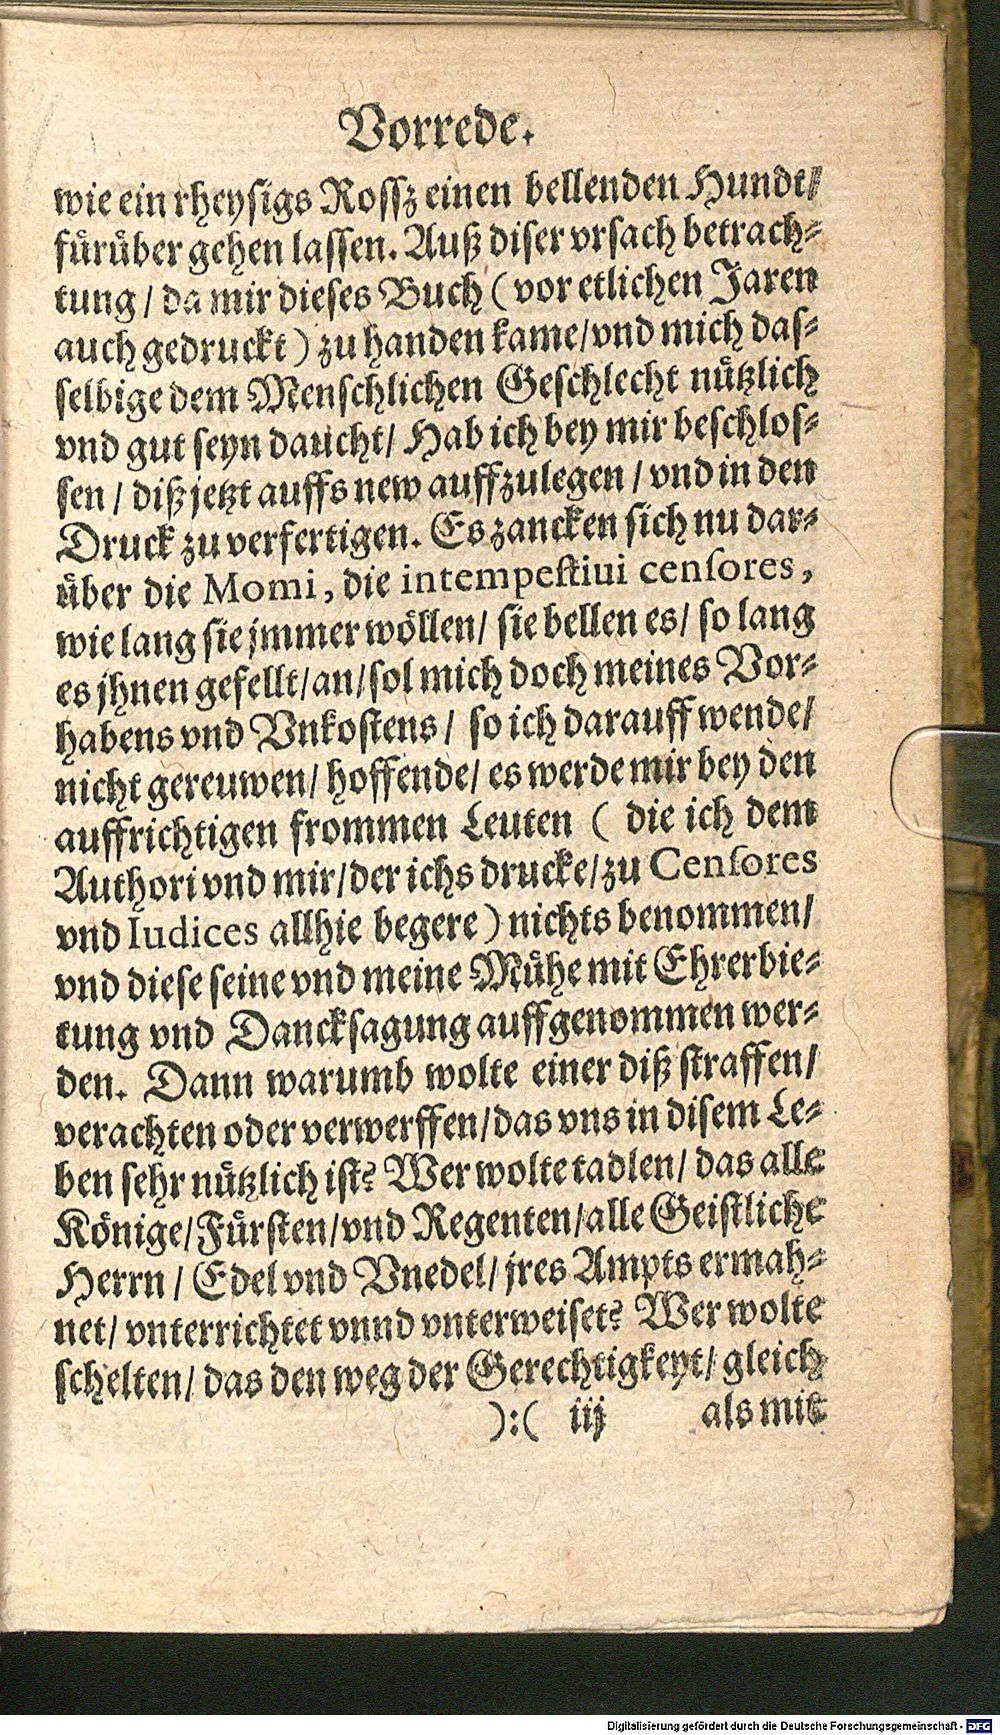 Vorrede.
wie ein rheysigs Rossz einen bellenden Hundt/
fürüber gehen lassen. Auß diser vrsach betrach-
tung / da mir dieses Buch ( vor etlichen Jaren
auch gedruckt ) zu handen kame/vnd mich das-
selbige dem Menschlichen Geschlecht nützlich
vnd gut seyn daucht/ Hab ich bey mir beschlos-
sen / diß jetzt auffs new auffzulegen / vnd in den
Druck zu verfertigen. Es zancken sich nu dar-
über die Momi, die intempestiui censores,
wie lang sie jmmer wöllen/ sie bellen es/ so lang
es jhnen gefellt/an/sol mich doch meines Vor-
habens vnd Vnkostens/ so ich darauff wende/
nicht gereuwen/ hoffende/ es werde mir bey den
auffrichtigen frommen Leuten ( die ich dem
Authori vnd mir/der ichs drucke/zu Censores
vnd Iudices allhie begere ) nichts benommen/
vnd diese seine vnd meine Mühe mit Ehrerbie-
tung vnd Dancksagung auffgenommen wer-
den. Dann warumb wolte einer diß straffen/
verachten oder verwerffen/das vns in disem Le-
ben sehr nützlich ist? Wer wolte tadlen/ das alle
Könige/Fürsten/vnd Regenten/alle Geistliche
Herrn / Edel vnd Vnedel/ jres Ampts ermah-
net/ vnterrichtet vnnd vnterweiset? Wer wolte
schelten/ das den weg der Gerechtigkeyt/ gleich
):( iij als mit
Digitalisierung gefördert durch die Deutsche Forschungsgemeinschaft - DFG